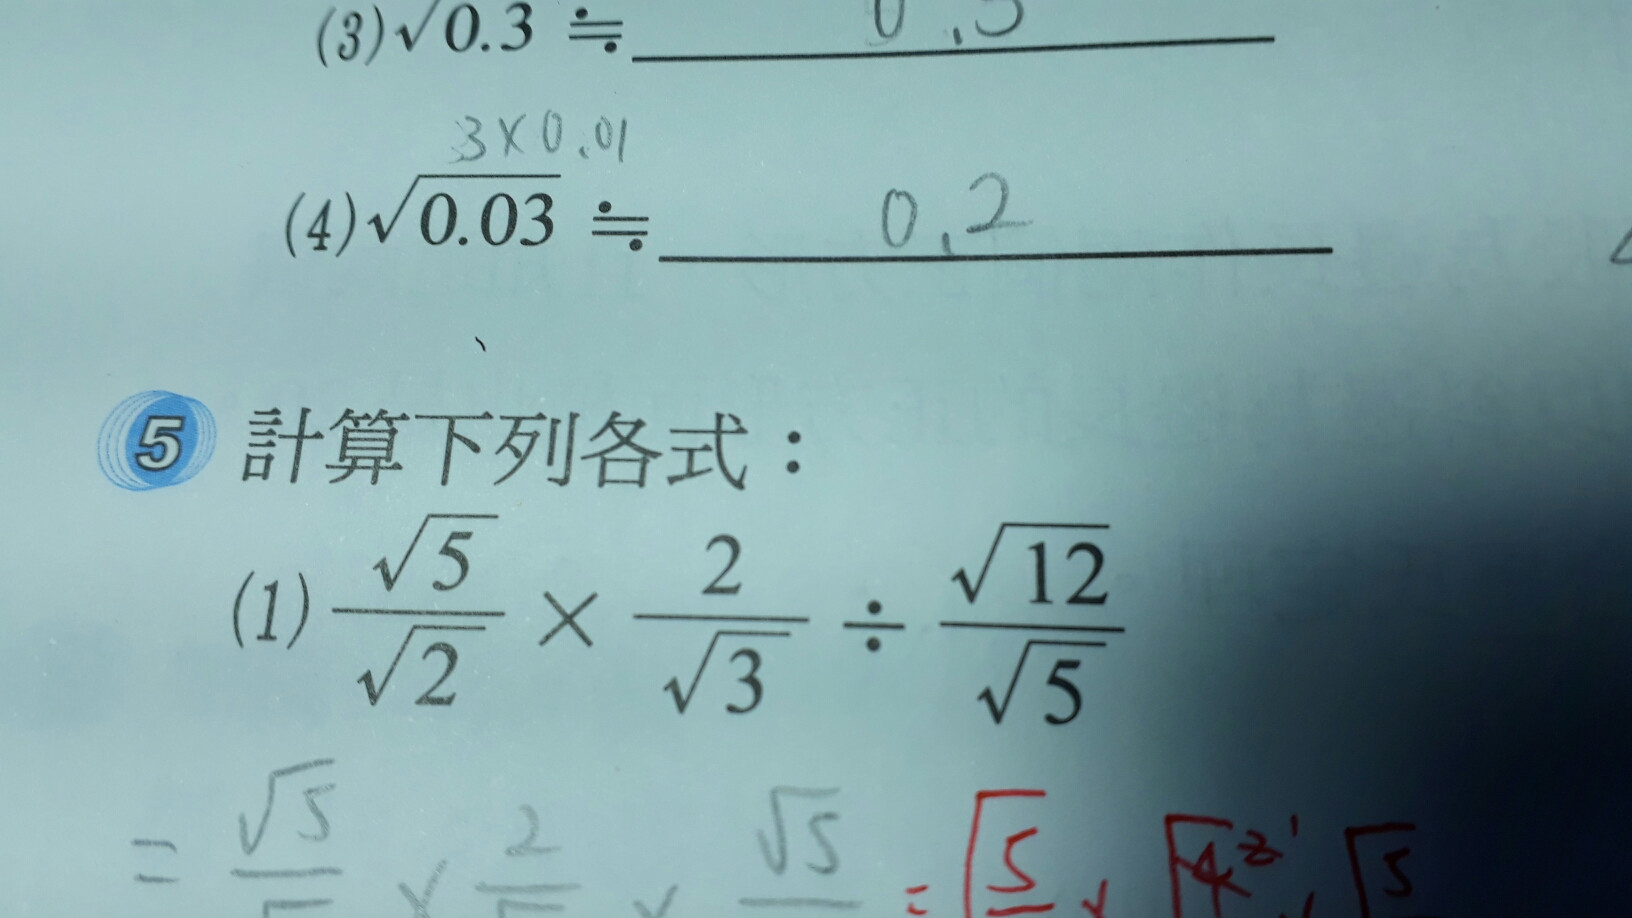 (3)√0.3 ≒
3×0.01
(4)√0.03 ≒ 0.2
5 計算下列各式：
(1) √5/√2 × 2/√3 ÷ √12/√5
= √5 × 2 × √5 = √5 × √4 2 1 × √5